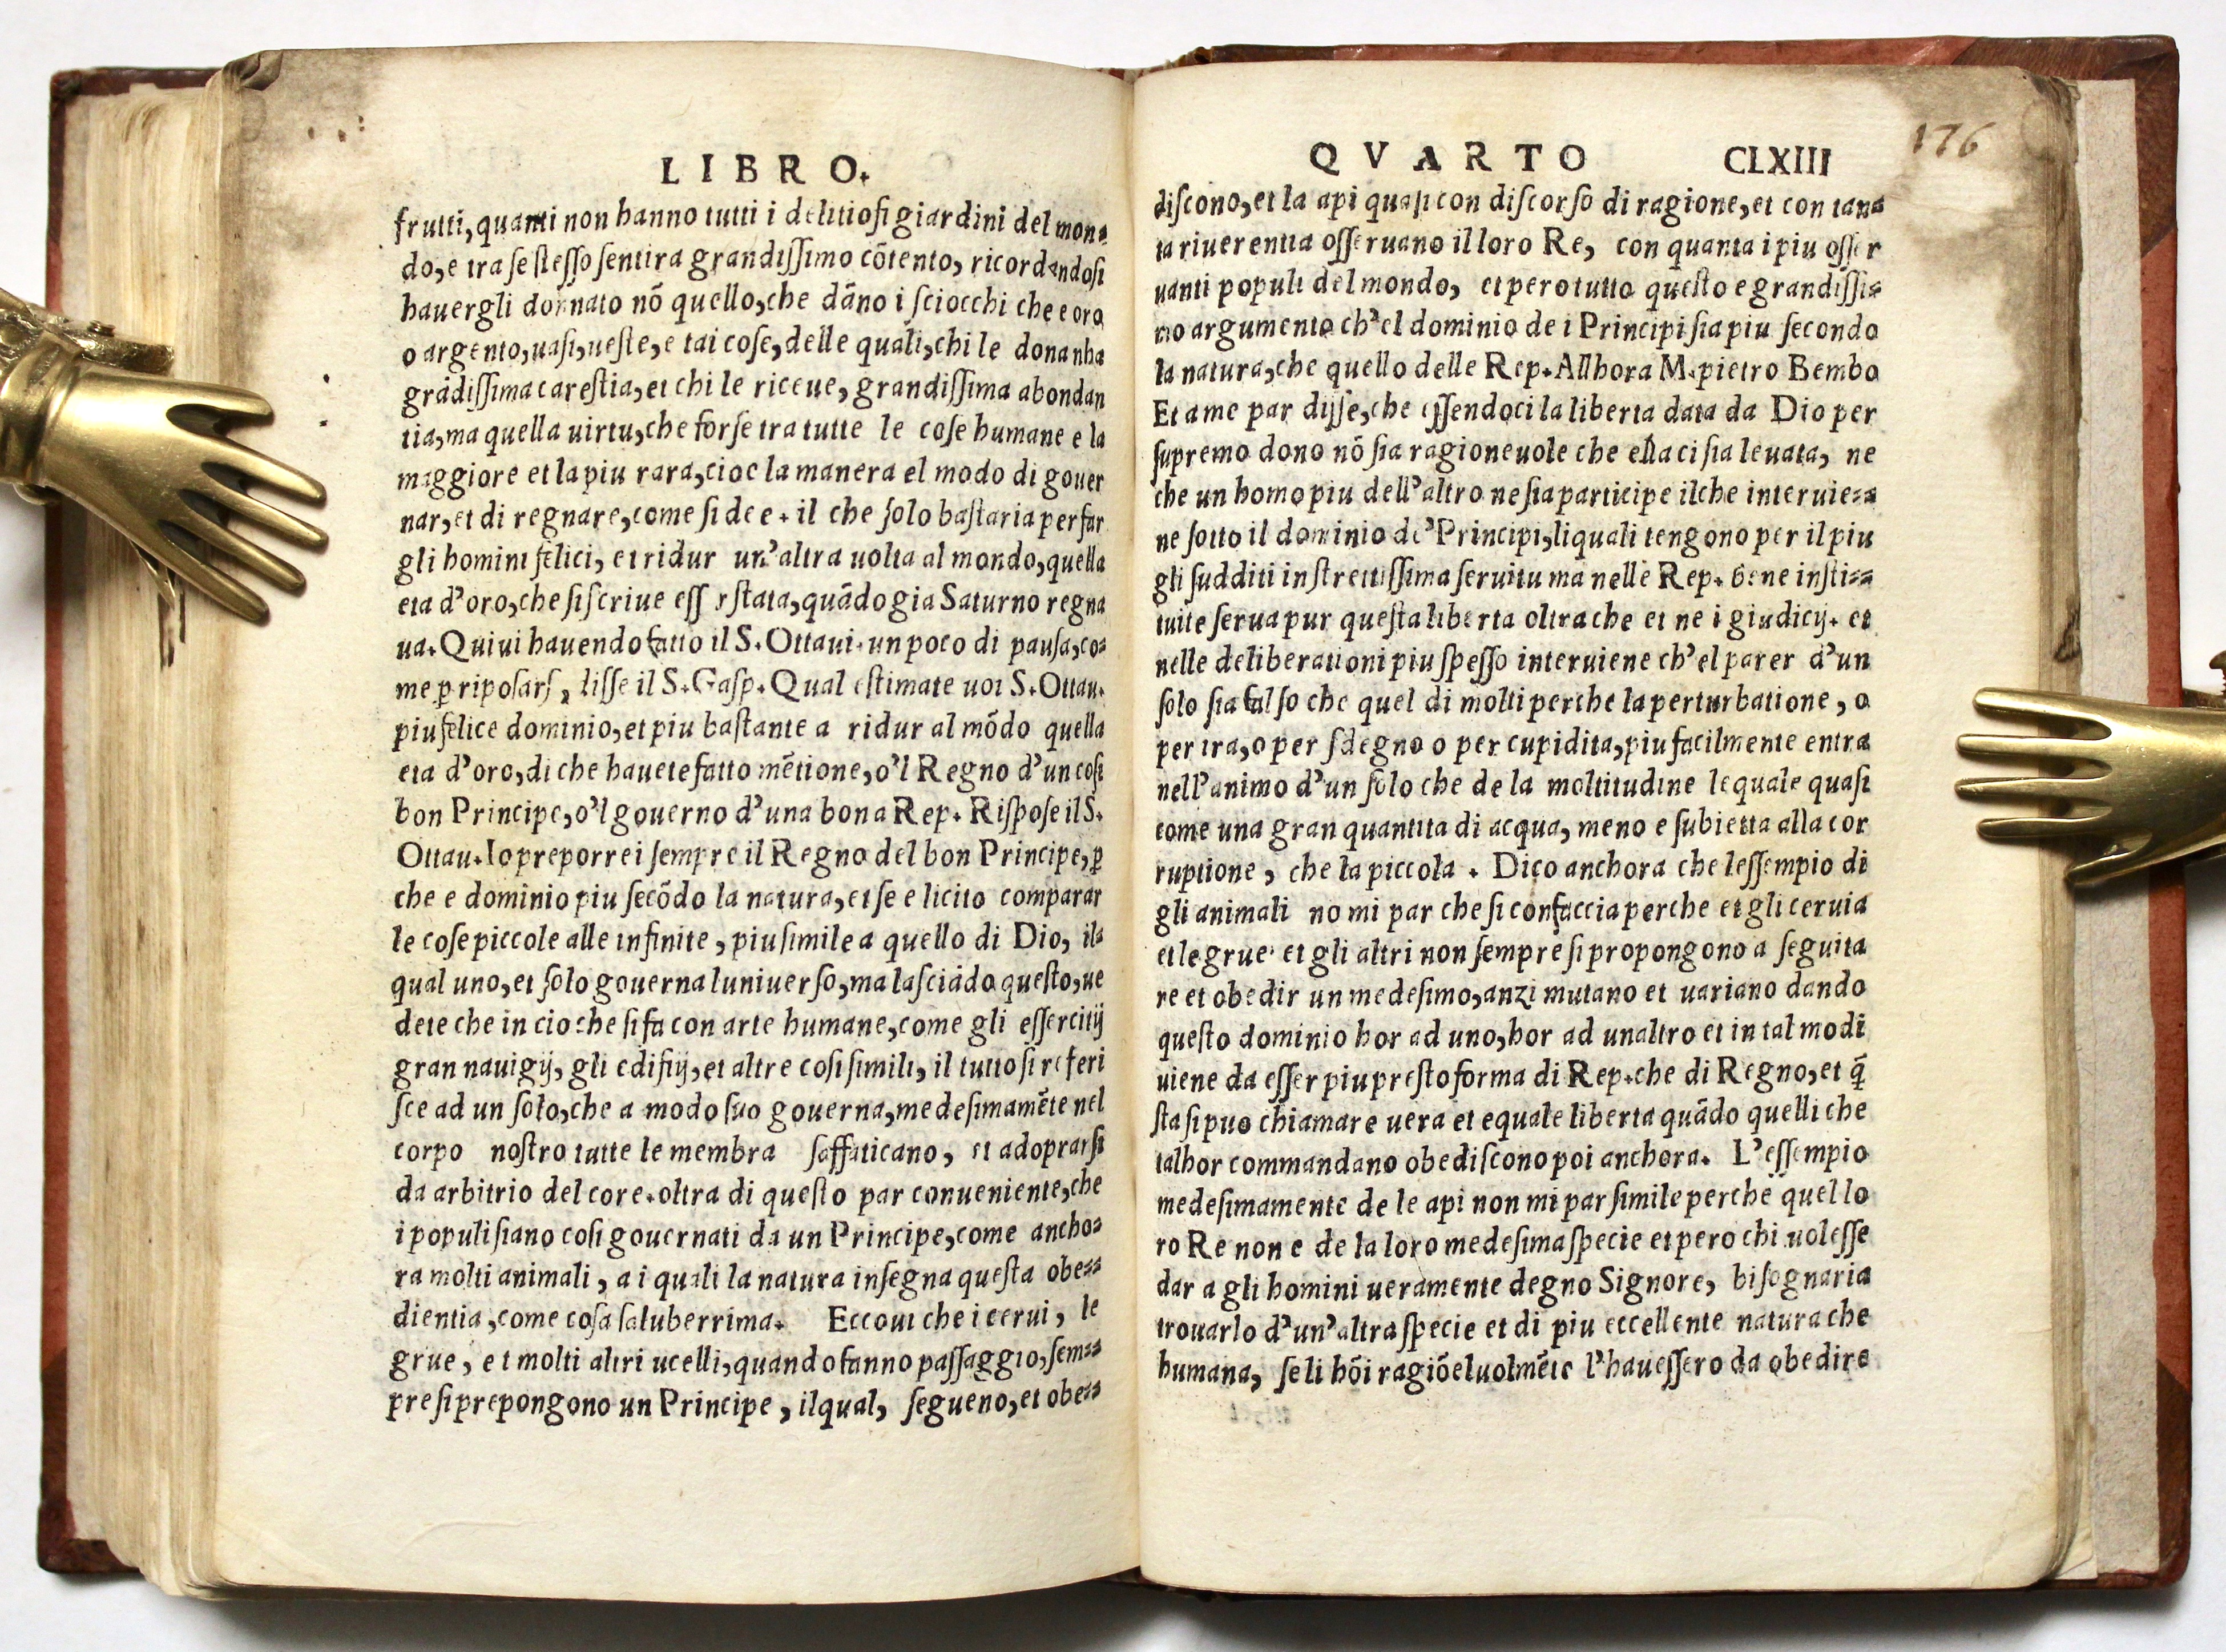 LIBRO.
frutti, quanti non hanno tutti i delitiosi giardini del mon-
do, e tra se stesso sentira grandissimo cõtento, ricordandosi
hauergli donnato nõ quello, che dãno i sciocchi che e oro
o argento, uasi, ueste, e tai cose, delle quali, chi le dona nha
grãdissima carestia, et chi le riceue, grandissima abondan
tia, ma quella uirtu, che forse tra tutte le cose humane e la
maggiore et la piu rara, cioe la manera el modo di gouer
nar, et di regnare, come si dee. il che solo bastaria per far
gli homini felici, et ridur un'altra uolta al mondo, quella
eta d'oro, che si scriue esser stata, quãdo gia Saturno regna
ua. Quiui hauendo fatto il S. Ottaui. un poco di pausa, co-
me ꝑ riposarsi, disse il S. Gasp. Qual estimate uoi S. Ottau.
piu felice dominio, et piu bastante a ridur al mõdo quella
eta d'oro, di che hauete fatto mẽtione, o'l Regno d'un cosi
bon Principe, o'l gouerno d'una bona Rep. Rispose il S.
Ottau. Io preporrei sempre il Regno del bon Principe, ꝑ
che e dominio piu secõdo la natura, et se e licito comparar
le cose piccole alle infinite, piu simile a quello di Dio, il-
qual uno, et solo gouerna luniuerso, ma lasciãdo questo, ue
dete che in cio che si fa con arte humane, come gli essercitij
gran nauigij, gli edifiij, et altre cosi simili, il tutto si referi
sce ad un solo, che a modo suo gouerna, medesimamẽte nel
corpo nostro tutte le membra saffaticano, et adoprarsi
da arbitrio del core. oltra di questo par conueniente, che
i populi siano cosi gouernati da un Principe, come ancho-
ra molti animali, a i quali la natura insegna questa obe-
dientia, come cosa saluberrima. Eccoui che i cerui, le
grue, et molti altri ucelli, quando fanno passaggio, sem-
pre si prepongono un Principe, ilqual, segueno, et obe-
QVARTO CLXIII
176
discono, et la api quasi con discorso di ragione, et con tan-
ta riuerentia osseruano il loro Re, con quanta i piu osser
uanti populi del mondo, et pero tutto questo e grandissi-
mo argumento ch'el dominio de i Principi sia piu secondo
la natura, che quello delle Rep. Allhora M. pietro Bembo
Et a me par disse, che essendoci la liberta data da Dio per
supremo dono nõ sia ragioneuole che ella ci sia leuata, ne
che un homo piu dell'altro ne sia participe ilche interuie-
ne sotto il dominio de' Principi, li quali tengono per il piu
gli sudditi in strettissima seruitu ma nelle Rep. bene insti-
tuite serua pur questa liberta oltra che et ne i giudicij. et
nelle deliberationi piu spesso interuiene ch'el parer d'un
solo sia falso che quel di molti perche la perturbatione, o
per ira, o per sdegno o per cupidita, piu facilmente entra
nell'animo d'un solo che de la moltitudine lequale quasi
come una gran quantita di acqua, meno e subietta alla cor
ruptione, che la piccola. Dico anchora che lessempio di
gli animali no mi par che si confaccia perche et gli ceruia
et le grue. et gli altri non sempre si propongono a seguita
re et obedir un medesimo, anzi mutano et uariano dando
questo dominio hor ad uno, hor ad unaltro et in tal modi
uiene da esser piu presto forma di Rep. che di Regno, et q̃
sta si puo chiamare uera et equale liberta quãdo quelli che
talhor commandano obediscono poi anchora. L'essempio
medesimamente de le api non mi par simile perche quel lo
ro Re non e de la loro medesima specie et pero chi uolesse
dar a gli homini ueramente degno Signore, bisognaria
trouarlo d'un'altra specie et di piu eccellente natura che
humana, se li hõi ragiõeluolmẽte l'hauessero da obedire